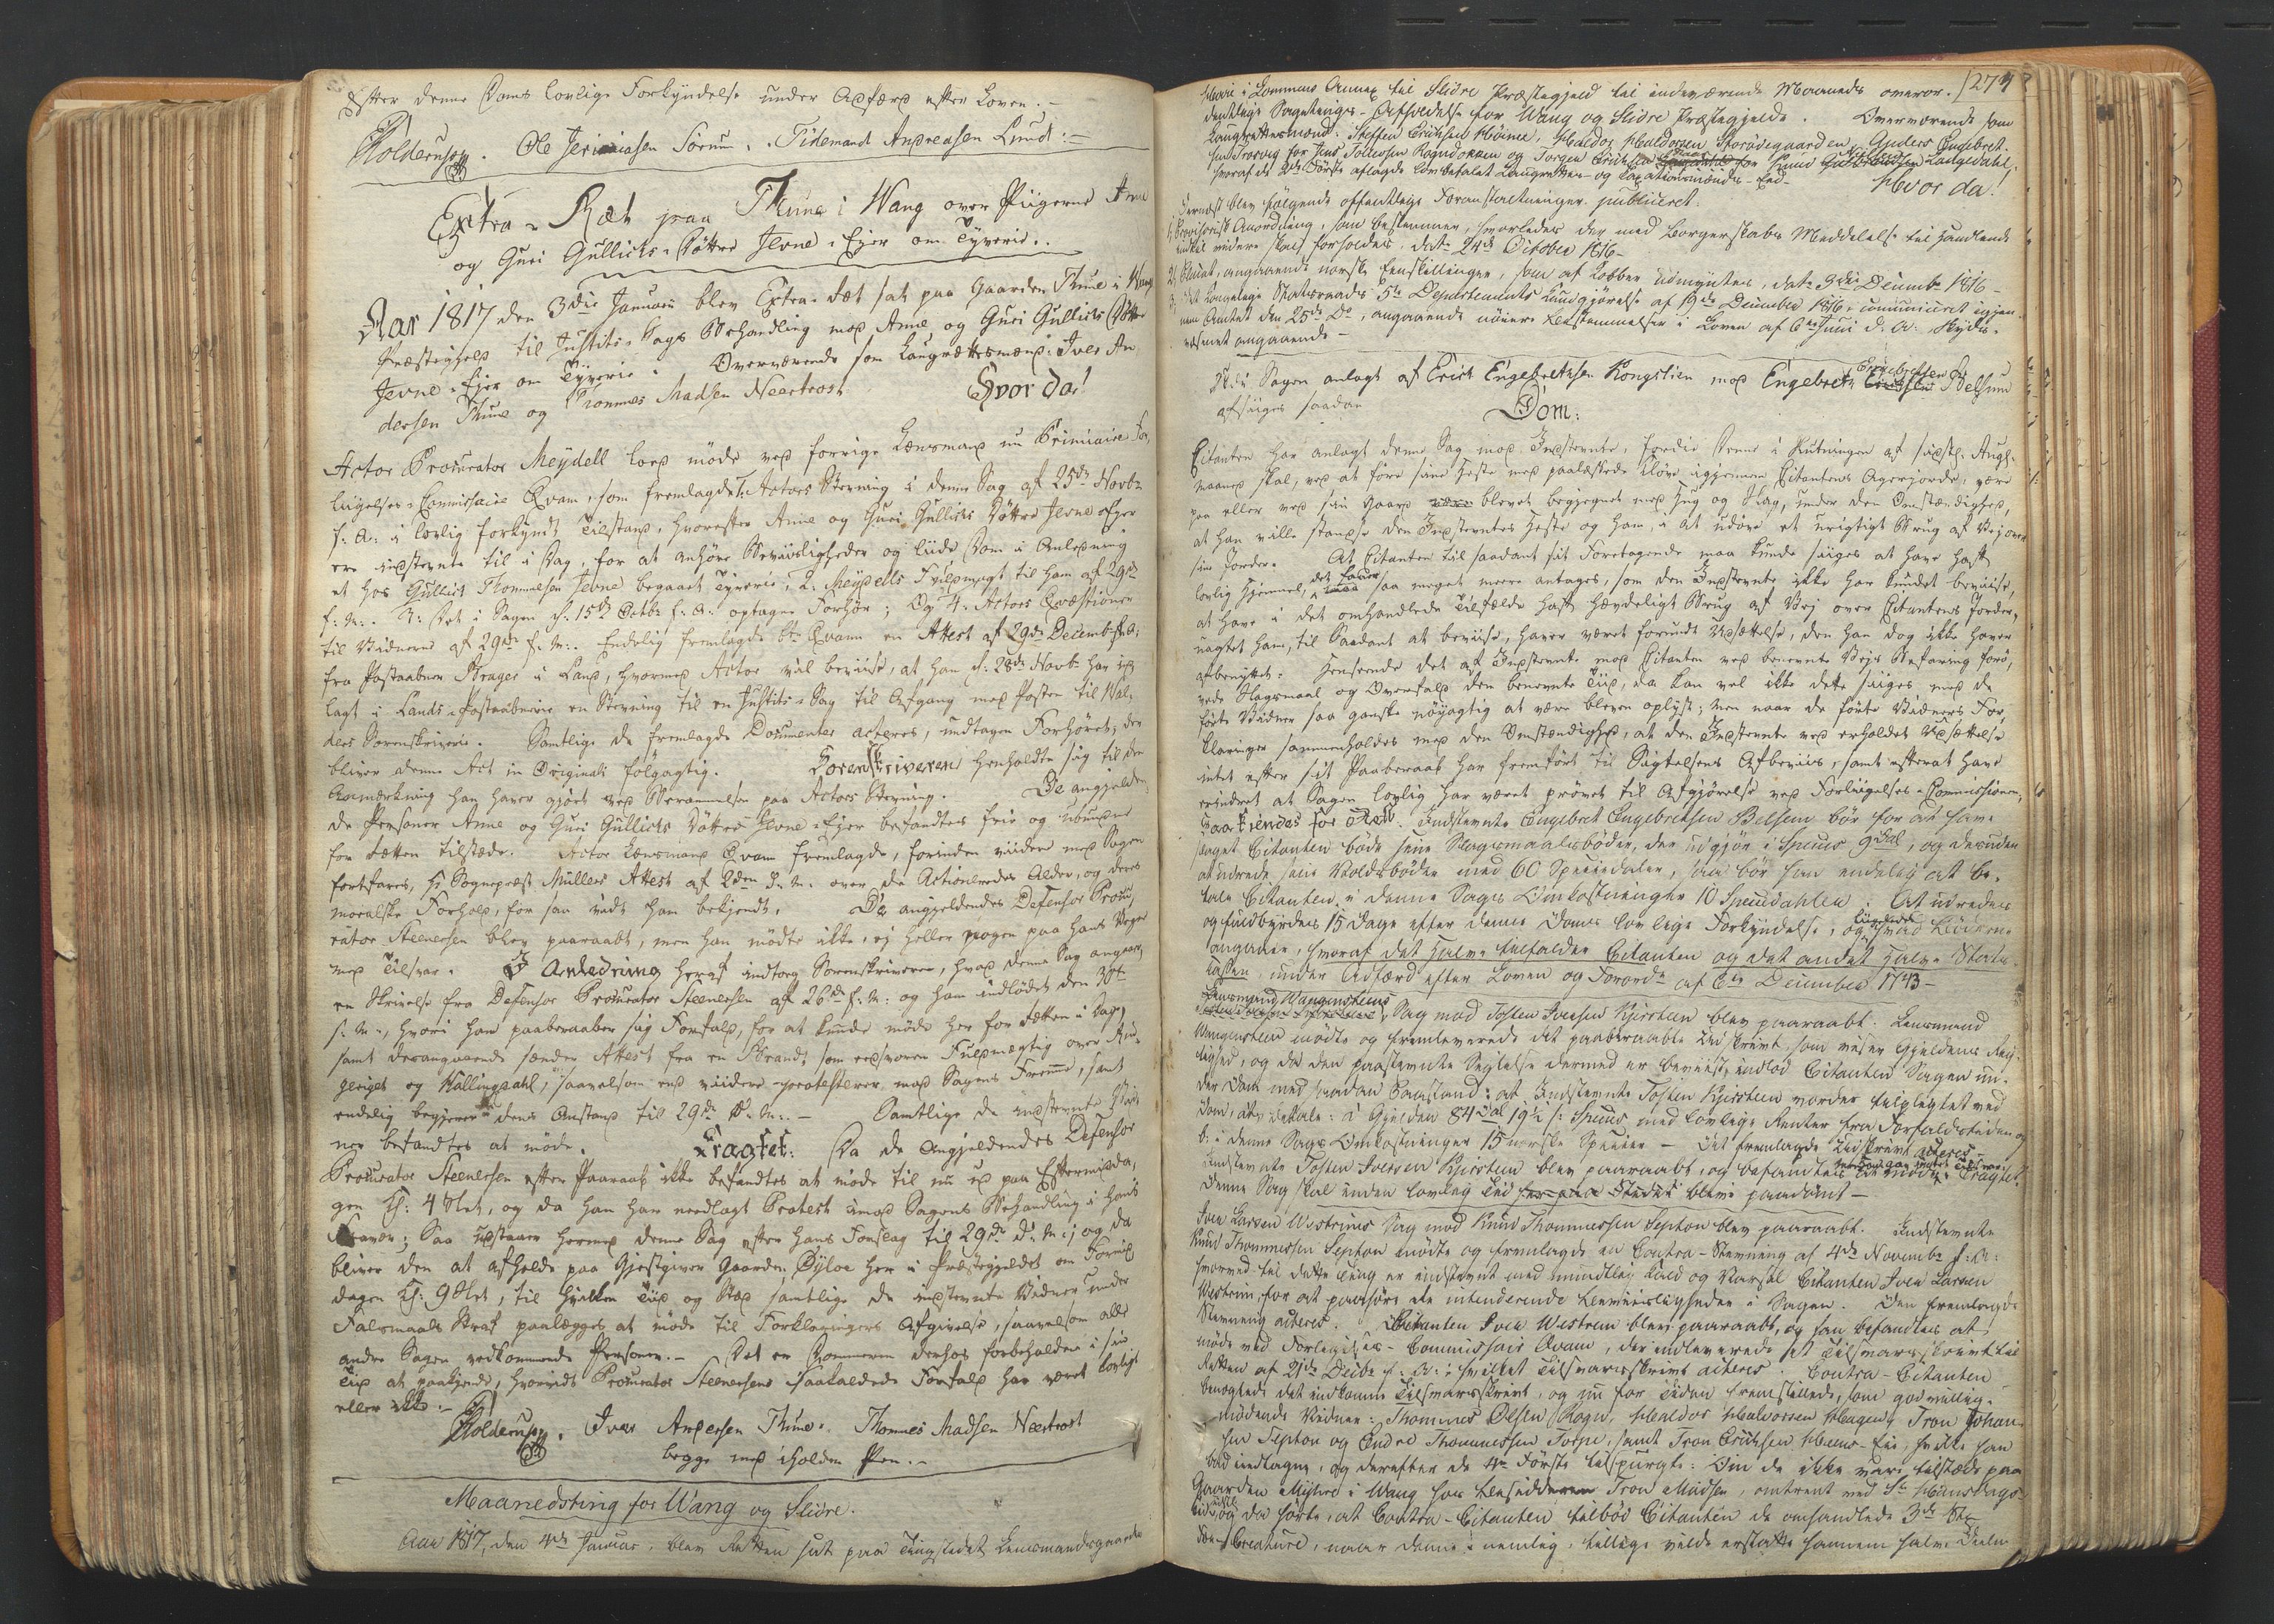 Efter denne Doms lovlige Forkyndelse under Adfærd efter Loven.-
Ole Jerimiasen Sørum. Tidemand Andreasen Lund:-
Extra-Ræt paa Thune i Wang over Piigerne Anne
og Guri Gullichs-Døttre Jevne-Ejer om Tyverie..
Aar 1817 den 3die Januarii blev Extra-Ræt sat paa Gaarden Thune i Wang
Præstegjeld til Justits-Sags Behandling mod Anne og Guri Gullichs Døttre
Jevne-Ejer om Tyverie. Overværende som Laugrettesmænd: Iver An-
dersen Thune og Thommes Madsen Neertrost Hvor da!
Actor Procurator Meydell lod møde ved forrige Lænsmand nu Primiaire For-
liigelses-Commissaire Qvam, som fremlagde 1. Actors Stevning i denne Sag af 25de Novbr
f: A: i lovlig forkyndt Tilstand, hvorefter Anne og Guri Gullichs Døttre Jevne-Ejer
ere indstevnte til i Dag, for at anhøre Beviisligheder og liide Dom i Anledning
et hos Gullich Thommesen Jevne begaaet Tyverie; 2. Meydells Fuldmagt til ham af 29de
f. M.. 3. Det i Sagen d: 15de Octbr f: A: optagne Forhør; Og 4. Actors Qvæstioner
til Vidnerne af 29de f. M:. Endelig fremlagde br Qvam en Attest af 29de Decembr f. A.
fra Postaabner Brager i Land, hvormed Actor vil beviise, at han d: 28de Novbr har ind-
lagt i Lands-Postaabnerie en Stevning til en Justits-Sag til Afgang med Posten til Val-
ders Sorenskriverie. Samtlige de fremlagde Documenter acteres, undtagen Forhøret, der
bliver denne Act in Originali følgagtig. Sorenskriveren henholdte sig til den
Anmærkning han haver gjort ved Berammelsen paa Actors Stevning. De angjelden-
de Personer Anne og Guri Gullichs Døttre Jevne-Ejer befandtes frie og ubundne
for Rætten tilstæde. Actor Lænsmand Qvam fremlagde, forinden viidere med Sagen
fortfares, Hr Sognepræst Müllers Attest af 2den d. M. over de Actioneredes Alder, og deres
moralske Forhold, for saa vidt ham bekjendt. De angjeldendes Defensor Procu-
rator Steenersen blev paaraabt, men han mødte ikke, ej heller nogen paa hans Vegne
med Tilsvar. I Anledning heraf indtog Sorenskriveren, hvad denne Sag angaaer,
en Skrivelse fra Defensor Procurator Steenersen af 26de f. M: og ham indløbet den 30te
s. M., hvori han paaberaaber sig Forfald, for at kunde møde her for Rætten i Dag,
samt desangaaende sender Attest fra en Brandt som eedsvoren Fuldmægtig over Rin-
geriget og Hallingdahl, saavelsom end viidere protesterer mod Sagens Fremme, samt
endelig begjerer dens Anstand til 29de d: M:.- Samtlige de indstevnte Vid-
ner befandtes at møde. Eragtet: Da de Angjeldendes Defensor
Procurator Steenersen efter Paaraab ikke befandtes at møde til nu ud paa Eftermidda-
gen Kl: 4 slet, og da han har nedlagt Protest imod Sagens Behandling i hans
Fravær; Saa udstaaer hermed denne Sag efter hans Forslag til 29de d: M:; og da
bliver den at afholde paa Gjestgiver Gaarden Øyloe her i Præstegjeldet om Formid-
dagen Kl: 9 slet, til hvilken Tid og Sted samtlige de indstevnte Vidner under
Falsmaals Straf paalægges at møde til Forklaringers Afgivelse, saavelsom alle
andre Sagen vedkommende Personer.- Det er Dommeren derhos forbeholden i sin
Tid at paakjende, hvorvidt Procurator Steenersens saakaldede Forfald har været lovligt
eller ikke.-
Iver Andersen Thune. Thommes Madsen Neertrost
begge med iholden Pen.-
Maanedsting for Wang og Slidre.
Aar 1817, den 4de Januar, blev Retten sat paa Tingstedet Lensmandsgaarden
274
i Lommens Annex til Slidre Præstegjeld til indeværende Maaneds overor-
dentlige Sagetinges-Afholdelse for Wang og Slidre Præstegjelde. Overværende som
Laugrettesmænd: Steffen Erichsen Høime, Haldor Haldorsen Storødegaarden, Anders Engebret-
sen Frosvig for Jens Tollefsen Rogndokken og Torgen Erichsen for Knud Guldbrandsen Langedahl,
hvoraf de 2de Første aflagde lovbefalet Laugrettes- og Taxationsmænds-Eed- Hvor da!
Dernest blev følgende offentlige Foranstaltninger publiceret:
1, Provisorisk Anordning, som bestemmer, hvorledes der med Borgerskabs Meddelelse til Handlende
indtil videre skal forholdes, datr 24de October 1816-
2, Placat, angaaende norske Eenskillinger, som af Kobber udmyntes, datr 9de Decembr 1816-
3, Det Kongelige Statsraads 5te Departements Kundgjørelse af 19de December 1816, communiceret igjen-
nem Amtet den 25de Do, angaaende nøiere Bestemmelser i Loven af 6te Juni d: A: Skyds-
væsenet angaaende-
I den Sagen anlagt af Erich Engebrethsen Kongslien mod Engebreth Engebrechtsen Belsum
afsiiges saadan
Dom:
Citanten har anlagt denne Sag mod Indstevnte, fordie denne i Slutningen af sidstl: Augst-
maaned skal, ved at føre sine Heste med paalæssede Kløve igjennem Citantens Agerjorde, være
paa eller ved sin Gaard blevet begegnet med Hug og Slag, under den Omstændighed,
at han ville standse den Indstevntes Heste og ham, i at udøve et urigtigt Brug af Vej over
sine Jorder. At Citanten til saadant sit Foretagende maa kunde siiges at have haft
lovlig Hjemmel, det lader saa meget meere antages, som den Indstevnte ikke har kundet beviise,
at have i det omhandlede Tilfælde haft hævdeligt Brug af Vej over Citantens Jorder,
uagtet ham, til Saadant at beviise, haver været forundt Udsættelse, den han dog ikke haver
afbenyttet. Henseende det af Indstevnte mod Citanten ved benevnte Vejs Befaring forø-
vede Slagsmaal og Overfald den benevnte Tiid, da kan vel ikke dette siiges med de
førte Vidner saa ganske nøyagtig at være bleven oplyst; men naar de førte Vidners For-
klaringer sammenholdes med den Omstændighed, at den Indstevnte ved erholdet Udsættelse
intet efter sit Paaberaab har fremført til Sigtelsens Afbeviis, samt efterat have
erindret at Sagen lovlig har været prøvet til Afgjørelse ved Forliigelses-Commissionen,
Saa kiendes for Ret: Indstevnte Engebret Engebretsen Belsem bør for at have
slaget Citanten bøde sine Slagsmaalsbøder, der udgjør i Species 9 Dal, og desuden
at udrede sine Voldsbøder med 60 Speciedaler, saa bør han endelig at be-
tale Citanten i denne Sags Omkostninger 10 Speciedahler. At udredes
og fuldbyrdes 15 Dage efter denne Doms lovlige Forkyndelse, og ligeledes hvad Bøderne
angaaer, hvoraf det halve tilfalder Citanten og det andet halve Stats-
Cassen, under Adfærd efter Loven og Forordn af 6te December 1743-
Lensmand Wangensteens Sag mod Tosten Iversen Kjirsteen blev paaraabt. Lensmand
Wangensteen mødte og fremleverede det paaberaabte Udskrivt, som viser Gjeldens Rig-
tighed, og da den paastevnte Sigtelse dermed er beviist, indlod Citanten Sagen un-
der Dom med saadan Paastand: at Indstevnte Tosten Kjirsteen vorder tilpligtet ved
Dom, at betale: a Gjelden 84 Dal 19½ s: Species med lovlige Renter fra Forfaldstiden og
b: i denne Sags Omkostninger 15 norske Species - Det fremlagde Udskrivt acteres-
Indstevnte Tosten Iversen Kjirsteen blev paaraabt, og befandtes at møde, men han gav intet Tilsvar. Eragtet:
Denne Sag skal inden lovlig Tid blive paadømt-
Iver Larsen Westrums Sag mod Knud Thommessen Septon blev paaraabt. Indstevnte
Knud Thommessen Septon mødte og fremlagde en Contra-Stevning af 4de Novembr f: A:
hvorved til dette Ting er indstevnt med mundtlig Kald og Varsel Citanten Iver Larsen
Westrum, for at paahøre de intenderende Bevisligheder i Sagen. Den fremlagde
Stevning acteres. Citanten Iver Westrum blev paaraabt, og han befandtes at
møde ved Forligelses-Commissair Qvam, der indleverede et Tilsvarsskrivt til
Retten af 21de Decbr f: A: hvilket Tilsvarsskrivt acteres. Contra-Citanten
benegtede det indkomne Tilsvarsskrivt, og nu for Tiden fremstillede, som godvillig-
mødende Vidner: Thommes Olsen Rogn, Haldor Halvorsen Haugen, Tron Johan-
sen Septon og Endre Thommessen Torpe, samt Tron Erichsen Hæens-Eie, hvilke han
bad indtagne, og derefter de 4re Første tilspurgte: Om de ikke vare tilstæde paa
Gaarden Myhre i Wang hos Besidderen Tron Madsen, omtrent ved St Hansdags-
tider, og da hørte, at Contra-Citanten tilbød Citanten de omhandlede 3de Stk
Creature, naar denne nemlig, tillige vilde erstatte hannem halve Deelen